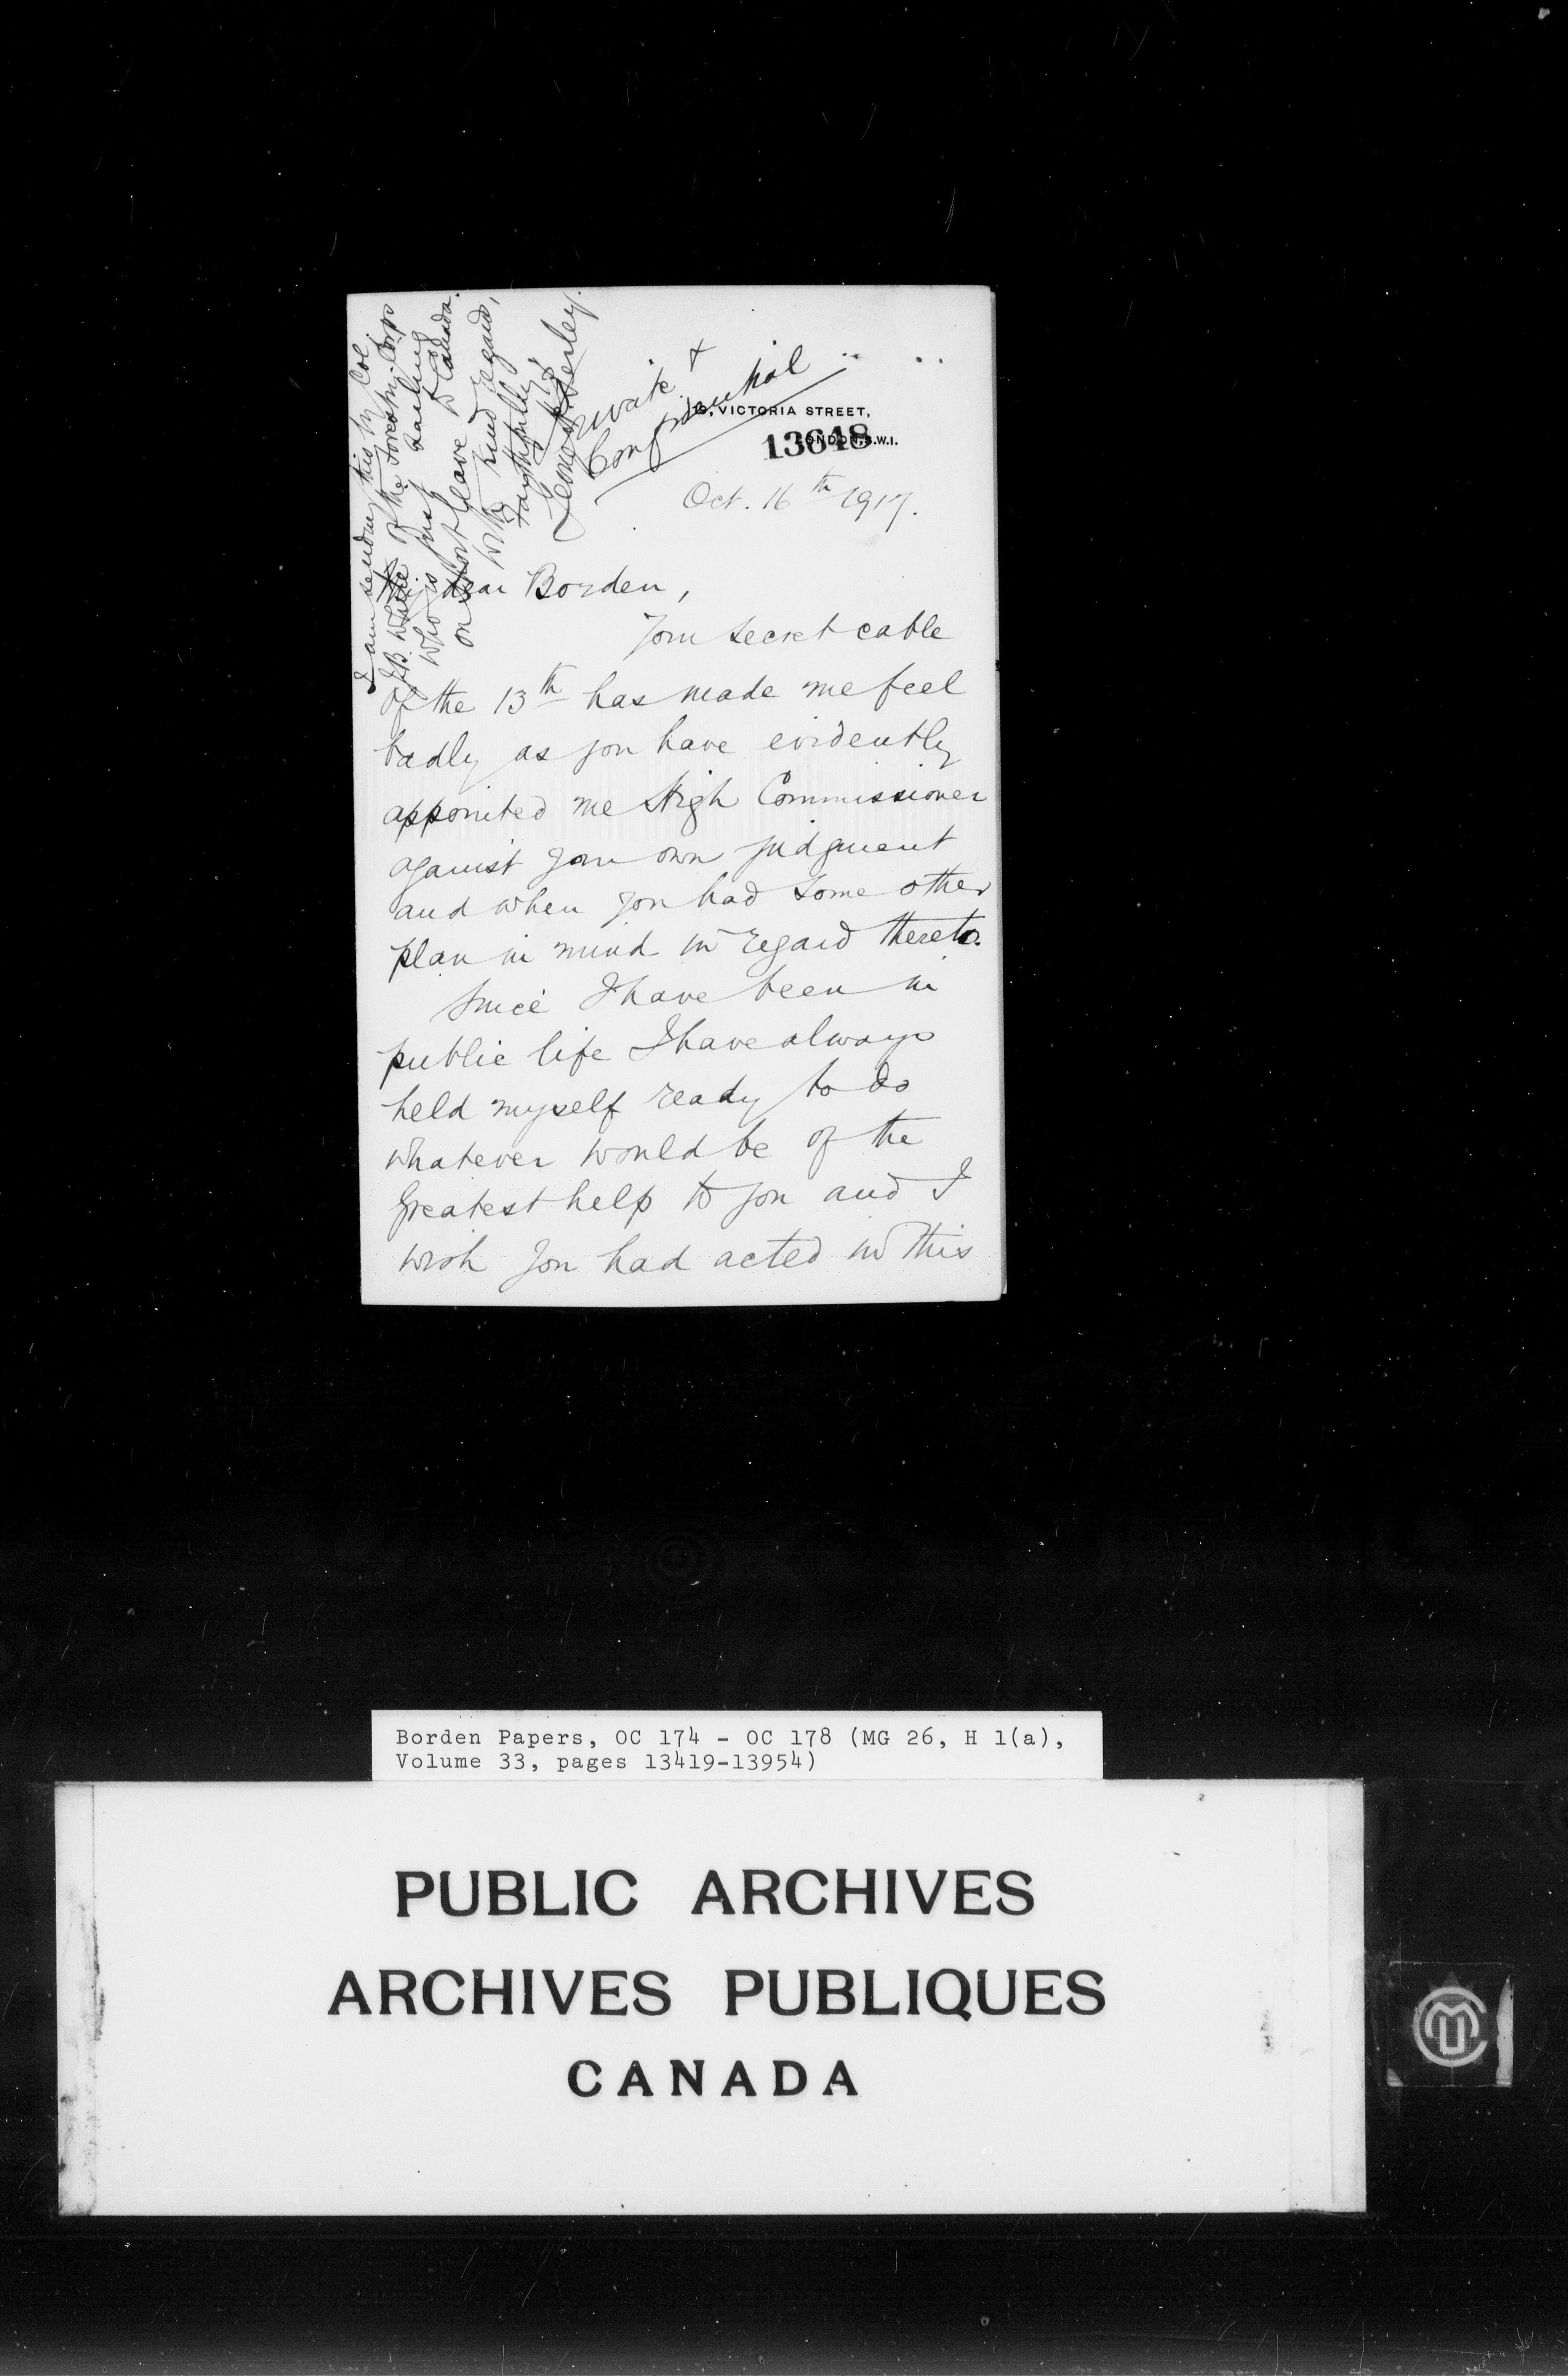 Private &
Confidential
VICTORIA STREET,
LONDON, S.W.1.
13648
Oct. 16th 1917.
dear Borden,
Your secret cable
of the 13th has made me feel
badly as you have evidently
appointed me High Commissioner
against your own judgment
and when you had some other
plan in mind in regard thereto.
Since I have been in
public life I have always
held myself ready to do
whatever would be of the
greatest help to you and I
wish you had acted in this
I am sending this by Col.
J.B. White of the Forestry Corps
who is just sailing
on short leave to Canada.
With kind regard,
Faithfully yrs
George H. Perley.
Borden Papers, OC 174 - OC 178 (MG 26, H 1(a),
Volume 33, pages 13419-13954)
PUBLIC ARCHIVES
ARCHIVES PUBLIQUES
CANADA